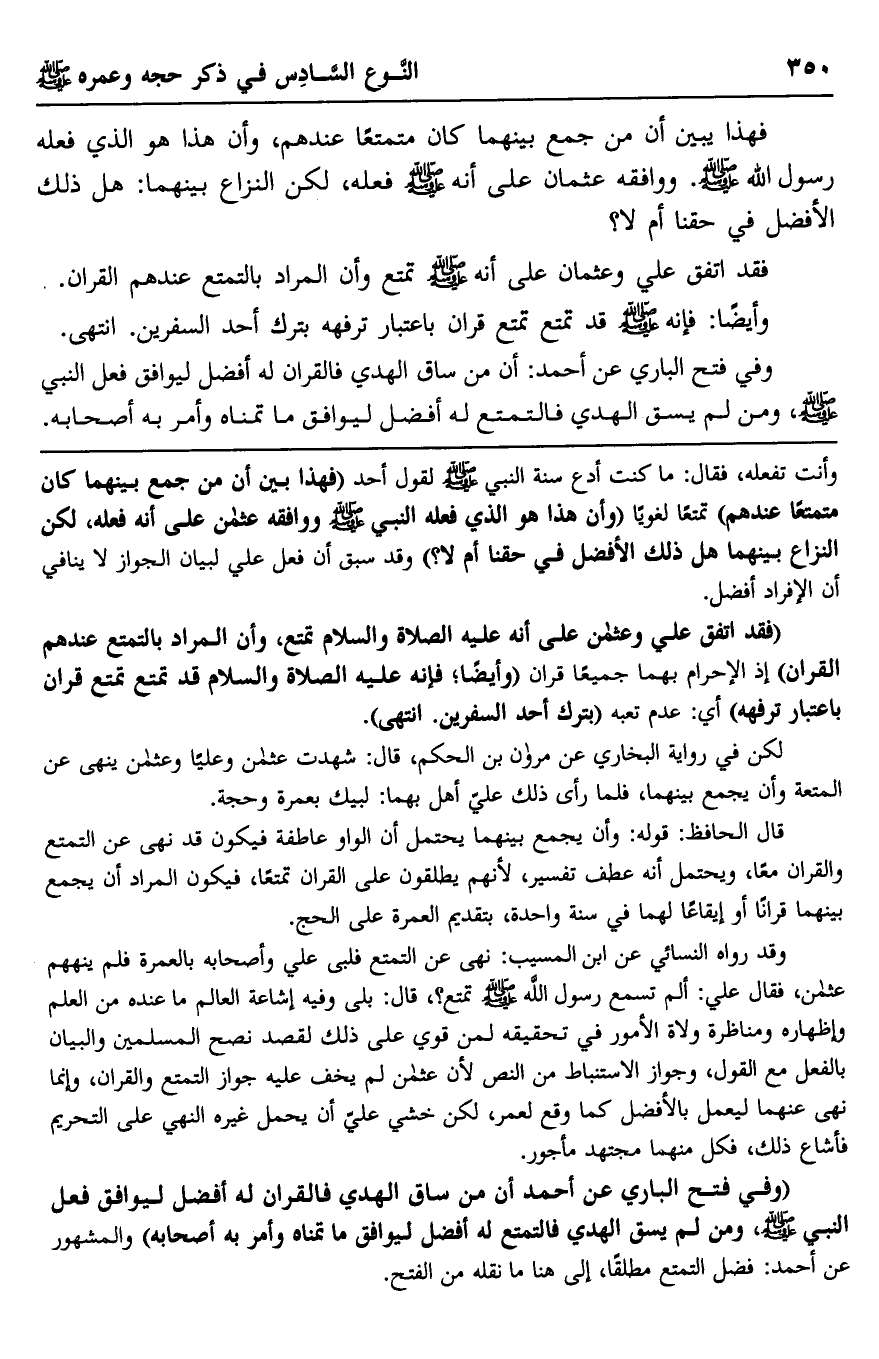 ٣٥٠ النَّوع السَّادِس في ذكر حجه وعمره ﷺ
فهذا يبين أن من جمع بينهما كان متمتعًا عندهم، وأن هذا هو الذي فعله
رسول الله ﷺ. ووافقه عثمان على أنه ﷺ فعله، لكن النزاع بينهما: هل ذلك
الأفضل في حقنا أم لا؟
فقد اتفق علي وعثمان على أنه ﷺ تمتع وأن المراد بالتمتع عندهم القران.
وأيضًا: فإنه ﷺ قد تمتع تمتع قران باعتبار ترفهه بترك أحد السفرين. انتهى.
وفي فتح الباري عن أحمد: أن من ساق الهدي فالقران له أفضل ليوافق فعل النبي
ﷺ، ومن لم يسق الهدي فالتمتع له أفضل ليوافق ما تمناه وأمر به أصحابه.
وأنت تفعله، فقال: ما كنت أدع سنة النبي ﷺ لقول أحد (فهذا بين أن من جمع بينهما كان
متمتعًا عندهم) تمتعًا لغويًا (وأن هذا هو الذي فعله النبي ﷺ ووافقه عثمٰن على أنه فعله، لكن
النزاع بينهما هل ذلك الأفضل في حقنا أم لا؟) وقد سبق أن فعل علي لبيان الجواز لا ينافي
أن الإفراد أفضل.
(فقد اتفق علي وعثمٰن على أنه عليه الصلاة والسلام تمتع، وأن المراد بالتمتع عندهم
القران) إذ الإحرام بهما جميعًا قران (وأيضًا؛ فإنه عليه الصلاة والسلام قد تمتع تمتع قران
باعتبار ترفهه) أي: عدم تعبه (بترك أحد السفرين. انتهى).
لكن في رواية البخاري عن مروٰن بن الحكم، قال: شهدت عثمٰن وعليًا وعثمٰن ينهى عن
المتعة وأن يجمع بينهما، فلما رأى ذلك عليّ أهل بهما: لبيك بعمرة وحجة.
قال الحافظ: قوله: وأن يجمع بينهما يحتمل أن الواو عاطفة فيكون قد نهى عن التمتع
والقران معًا، ويحتمل أنه عطف تفسير، لأنهم يطلقون على القران تمتعًا، فيكون المراد أن يجمع
بينهما قرانًا أو إيقاعًا لهما في سنة واحدة، بتقديم العمرة على الحج.
وقد رواه النسائي عن ابن المسيب: نهى عن التمتع فلبى علي وأصحابه بالعمرة فلم ينههم
عثمٰن، فقال علي: ألم تسمع رسول اللَّه ﷺ تمتع؟، قال: بلى وفيه إشاعة العالم ما عنده من العلم
وإظهاره ومناظرة ولاة الأمور في تحقيقه لمن قوي على ذلك لقصد نصح المسلمين والبيان
بالفعل مع القول، وجواز الاستنباط من النص لأن عثمٰن لم يخف عليه جواز التمتع والقران، وإنما
نهى عنهما ليعمل بالأفضل كما وقع لعمر، لكن خشي عليّ أن يحمل غيره النهي على التحريم
فأشاع ذلك، فكل منهما مجتهد مأجور.
(وفي فتح الباري عن أحمد أن من ساق الهدي فالقران له أفضل ليوافق فعل
النبي ﷺ، ومن لم يسق الهدي فالتمتع له أفضل ليوافق ما تمناه وأمر به أصحابه) والمشهور
عن أحمد: فضل التمتع مطلقًا، إلى هنا ما نقله من الفتح.